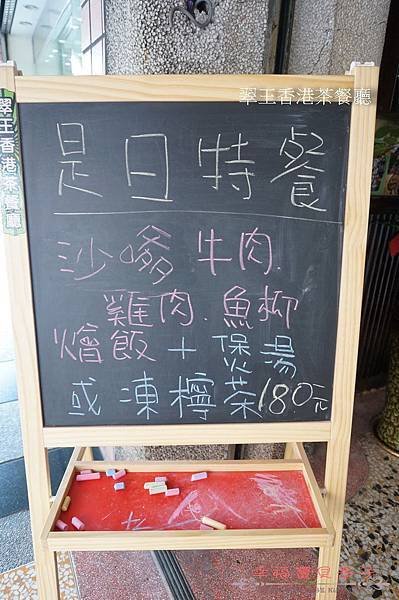 翠王香港茶餐廳
翠王香港茶餐廳
是日特餐
沙嗲牛肉.
雞肉.魚柳
燴飯+煲湯
或凍檸茶180元